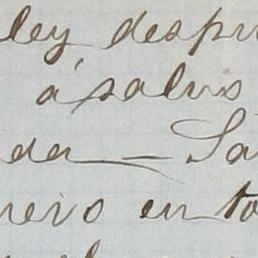 ley despu
á salvo
da — Sa
nero en to